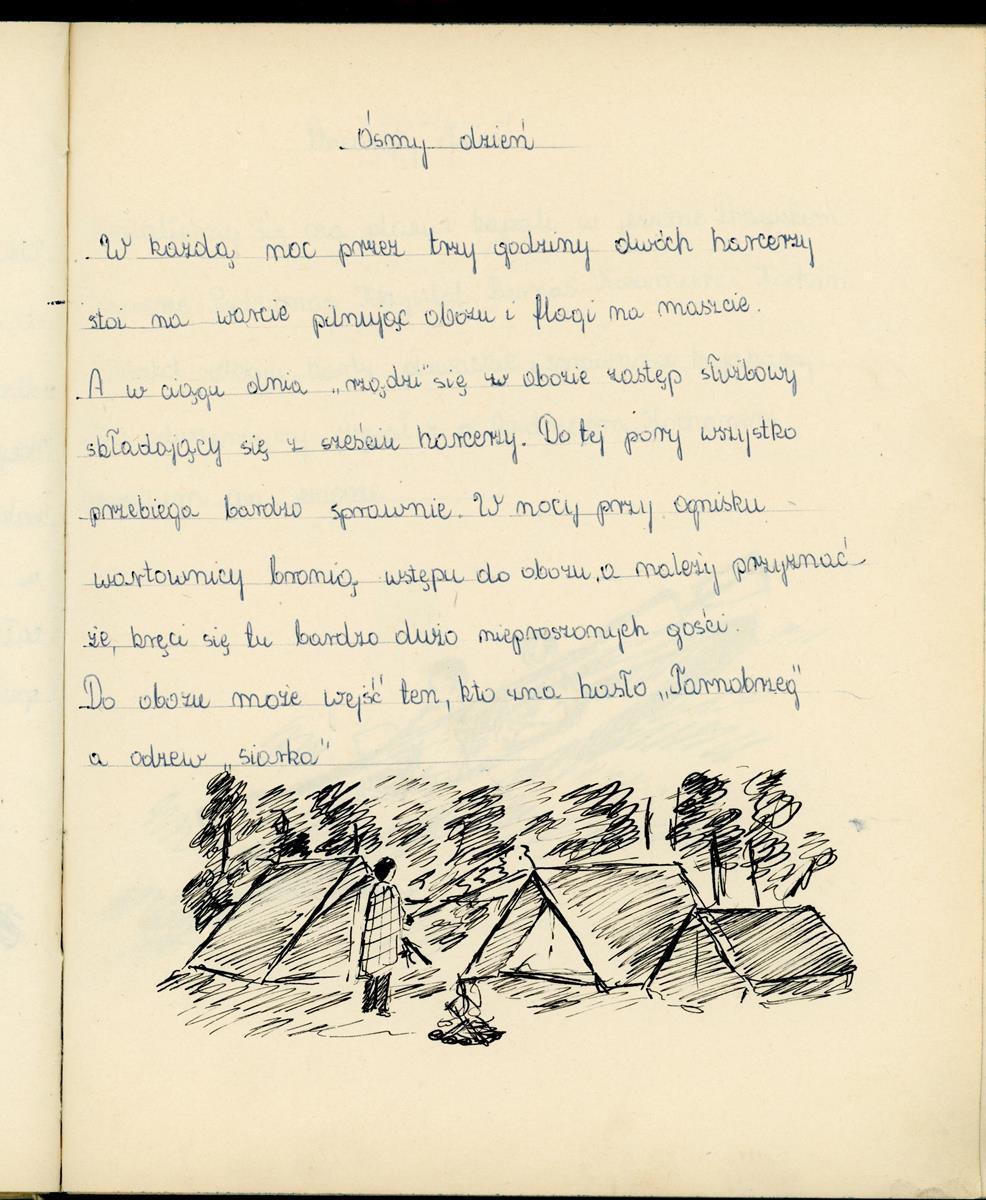 Ósmy dzień
W każdą noc przez trzy godziny dwóch harcerzy
stoi na warcie pilnując obozu i flagi na maszcie.
A w ciągu dnia „rządzi" się w obozie zastęp służbowy
składający się z sześciu harcerzy. Do tej pory wszystko
przebiega bardzo sprawnie. W nocy przy ognisku
wartownicy bronią wstępu do obozu, a należy przyznać
że, kręci się tu bardzo dużo nieproszonych gości.
Do obozu może wejść ten, kto zna hasło „Tarnobrzeg"
a odzew „siarka"